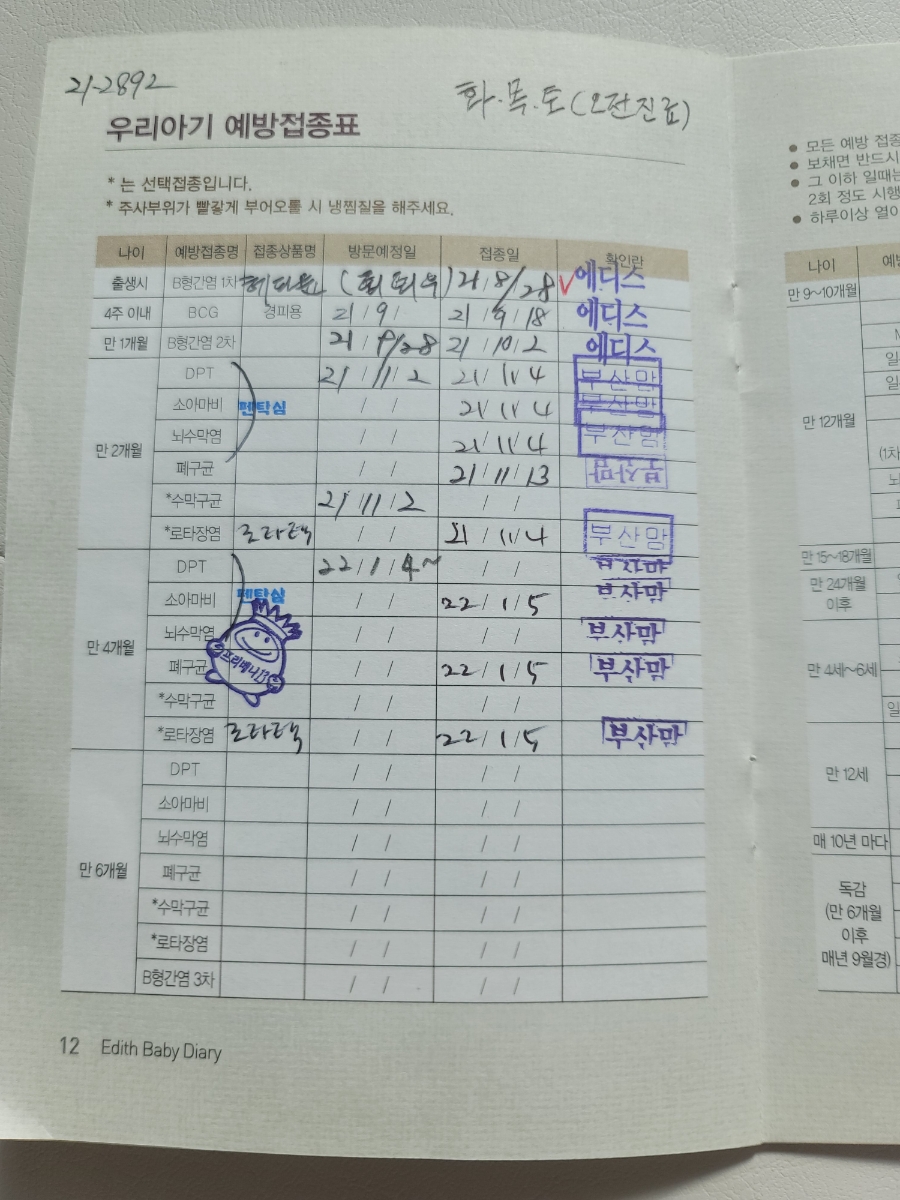 21-2892
화·목·토(오전진료)
우리아기 예방접종표
* 는 선택접종입니다.
* 주사부위가 빨갛게 부어오를 시 냉찜질을 해주세요.
나이 예방접종명 접종상품명 방문예정일 접종일 확인란
출생시 B형간염 1차 21/8/28 에디스
4주 이내 BCG 경피용 21/9/ 21/9/18 에디스
만 1개월 B형간염 2차 21/9/28 21/10/2 에디스
만 2개월
DPT 21/11/2 21/11/4 부산맘
소아마비 펜탁심 / / 21/11/4 부산맘
뇌수막염 / / 21/11/4 부산맘
폐구균 / / 21/11/13 부산맘
*수막구균 21/11/2 / /
*로타장염 로타텍 / / 21/11/4 부산맘
만 4개월
DPT 22/1/4~ / / 부산맘
소아마비 펜탁심 / / 22/1/5 부산맘
뇌수막염 / / / / 부산맘
프리베나13
폐구균 / / 22/1/5 부산맘
*수막구균 / / / /
*로타장염 로타텍 / / 22/1/5 부산맘
만 6개월
DPT / / / /
소아마비 / / / /
뇌수막염 / / / /
폐구균 / / / /
*수막구균 / / / /
*로타장염 / / / /
B형간염 3차 / / / /
12 Edith Baby Diary
● 모든 예방 접종
● 보채면 반드시
● 그 이하 일때는
2회 정도 시행
● 하루이상 열이
나이 예
만 9~10개월
만 12개월
(1차
만 15~18개월
만 24개월
이후
만 4세~6세
만 12세
매 10년 마다
독감
(만 6개월
이후
매년 9월경)